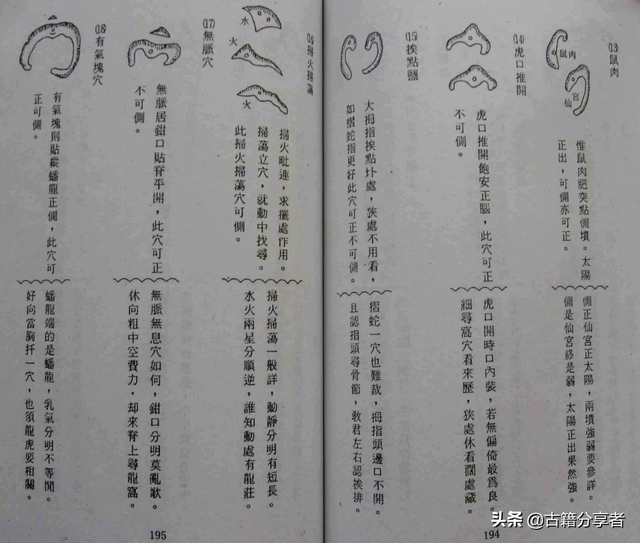 (13)鼠肉
鼠肉
仙宮
惟鼠肉肥突點側墳。太陽
正出，可側亦可正。
側正仙宮正太陽，兩墳強弱要參詳。
側是仙宮移是弱，太陽正出果然強。
(14)虎口推開
虎口推開飽安正腦，此穴可正
不可側。
虎口開時口內裝，若無偏倚最爲良。
細尋窩穴看來歷，狹處休看濶處藏。
(15)挨點鹽
大拇指挨點圤處，狹處不用看，
如摺蛇指更好此穴可正不可側。
摺蛇一穴也難裁，拇指頭邊口不開。
且認指頭尋骨節，敎君左右認挨排。
194
(16)掃火掃蕩
水
火
火
掃火毗連，求擺處作用。
掃蕩立穴，就動中找尋。
此掃火掃蕩穴可側。
掃火掃蕩一般詳，動靜分明有短長。
水火兩星分順逆，誰知動處有龍莊。
(17)無脈穴
無脈居鉗口貼脊平開，此穴可正
不可側。
無脈無息穴如何，鉗口分明莫亂歌。
休向粗中空費力，却來脊上尋龍窩。
(18)有氣塊穴
有氣塊則貼縱蟠龍正側，此穴可
正可側。
蟠龍端的是蟠龍，乳氣分明不等閒。
好向當胸扦一穴，也須龍虎要相關。
195
头条 @古籍分享者